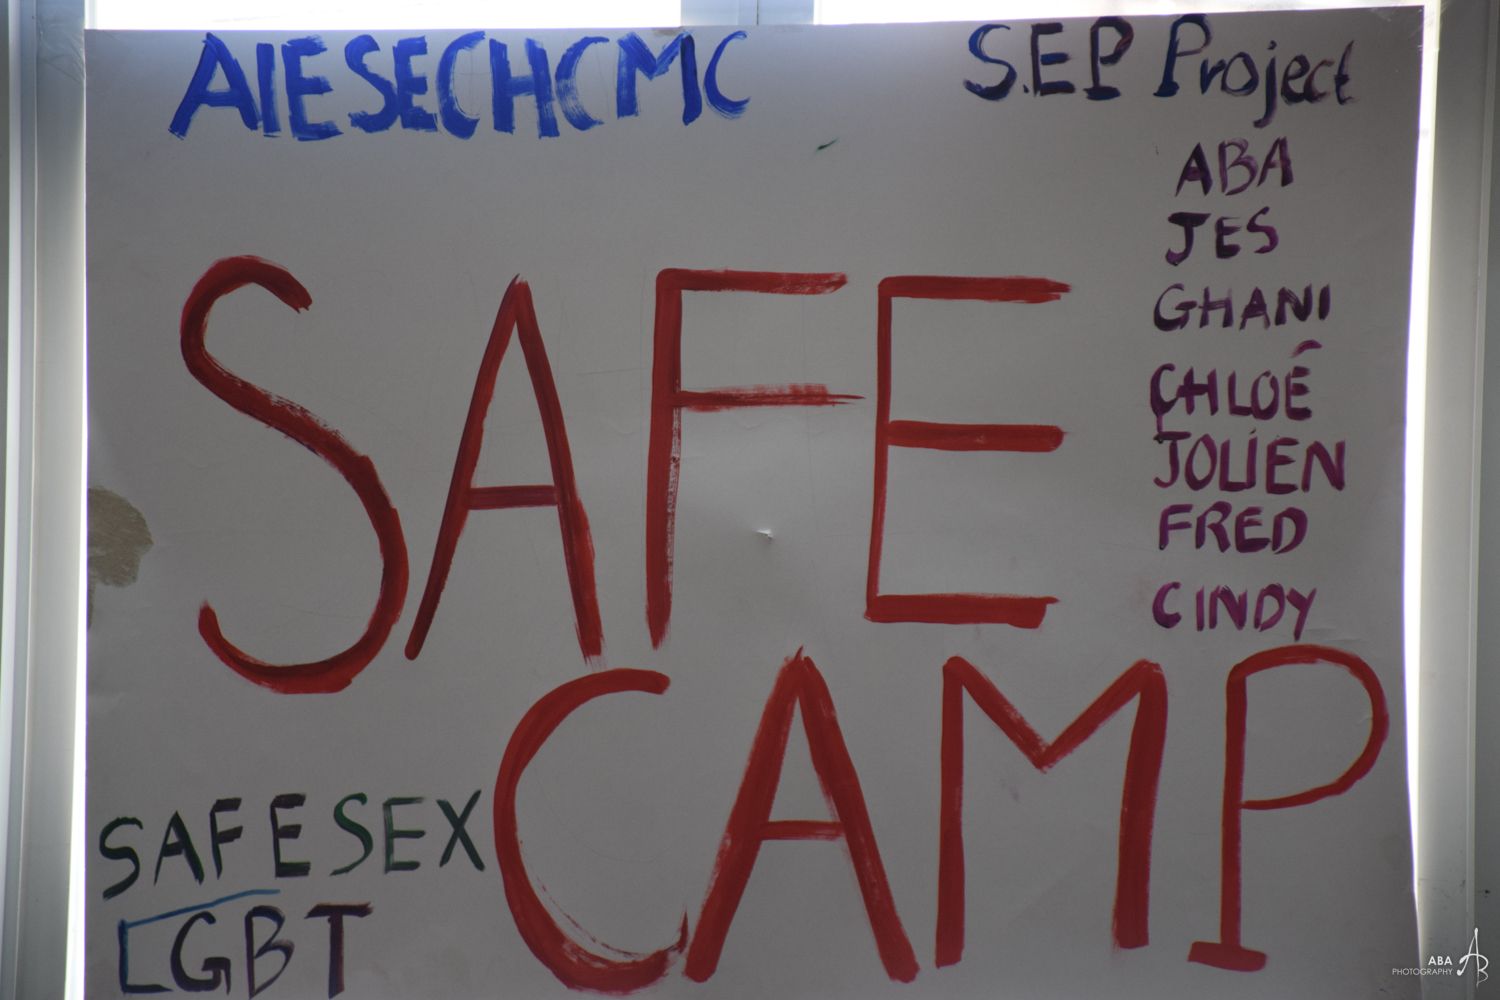 AIESECHCMC
S.E.P Project
ABA
JES
GHANI
CHLOÉ
JOLIEN
FRED
CINDY
SAFE
CAMP
SAFE SEX
LGBT
ABA
PHOTOGRAPHY